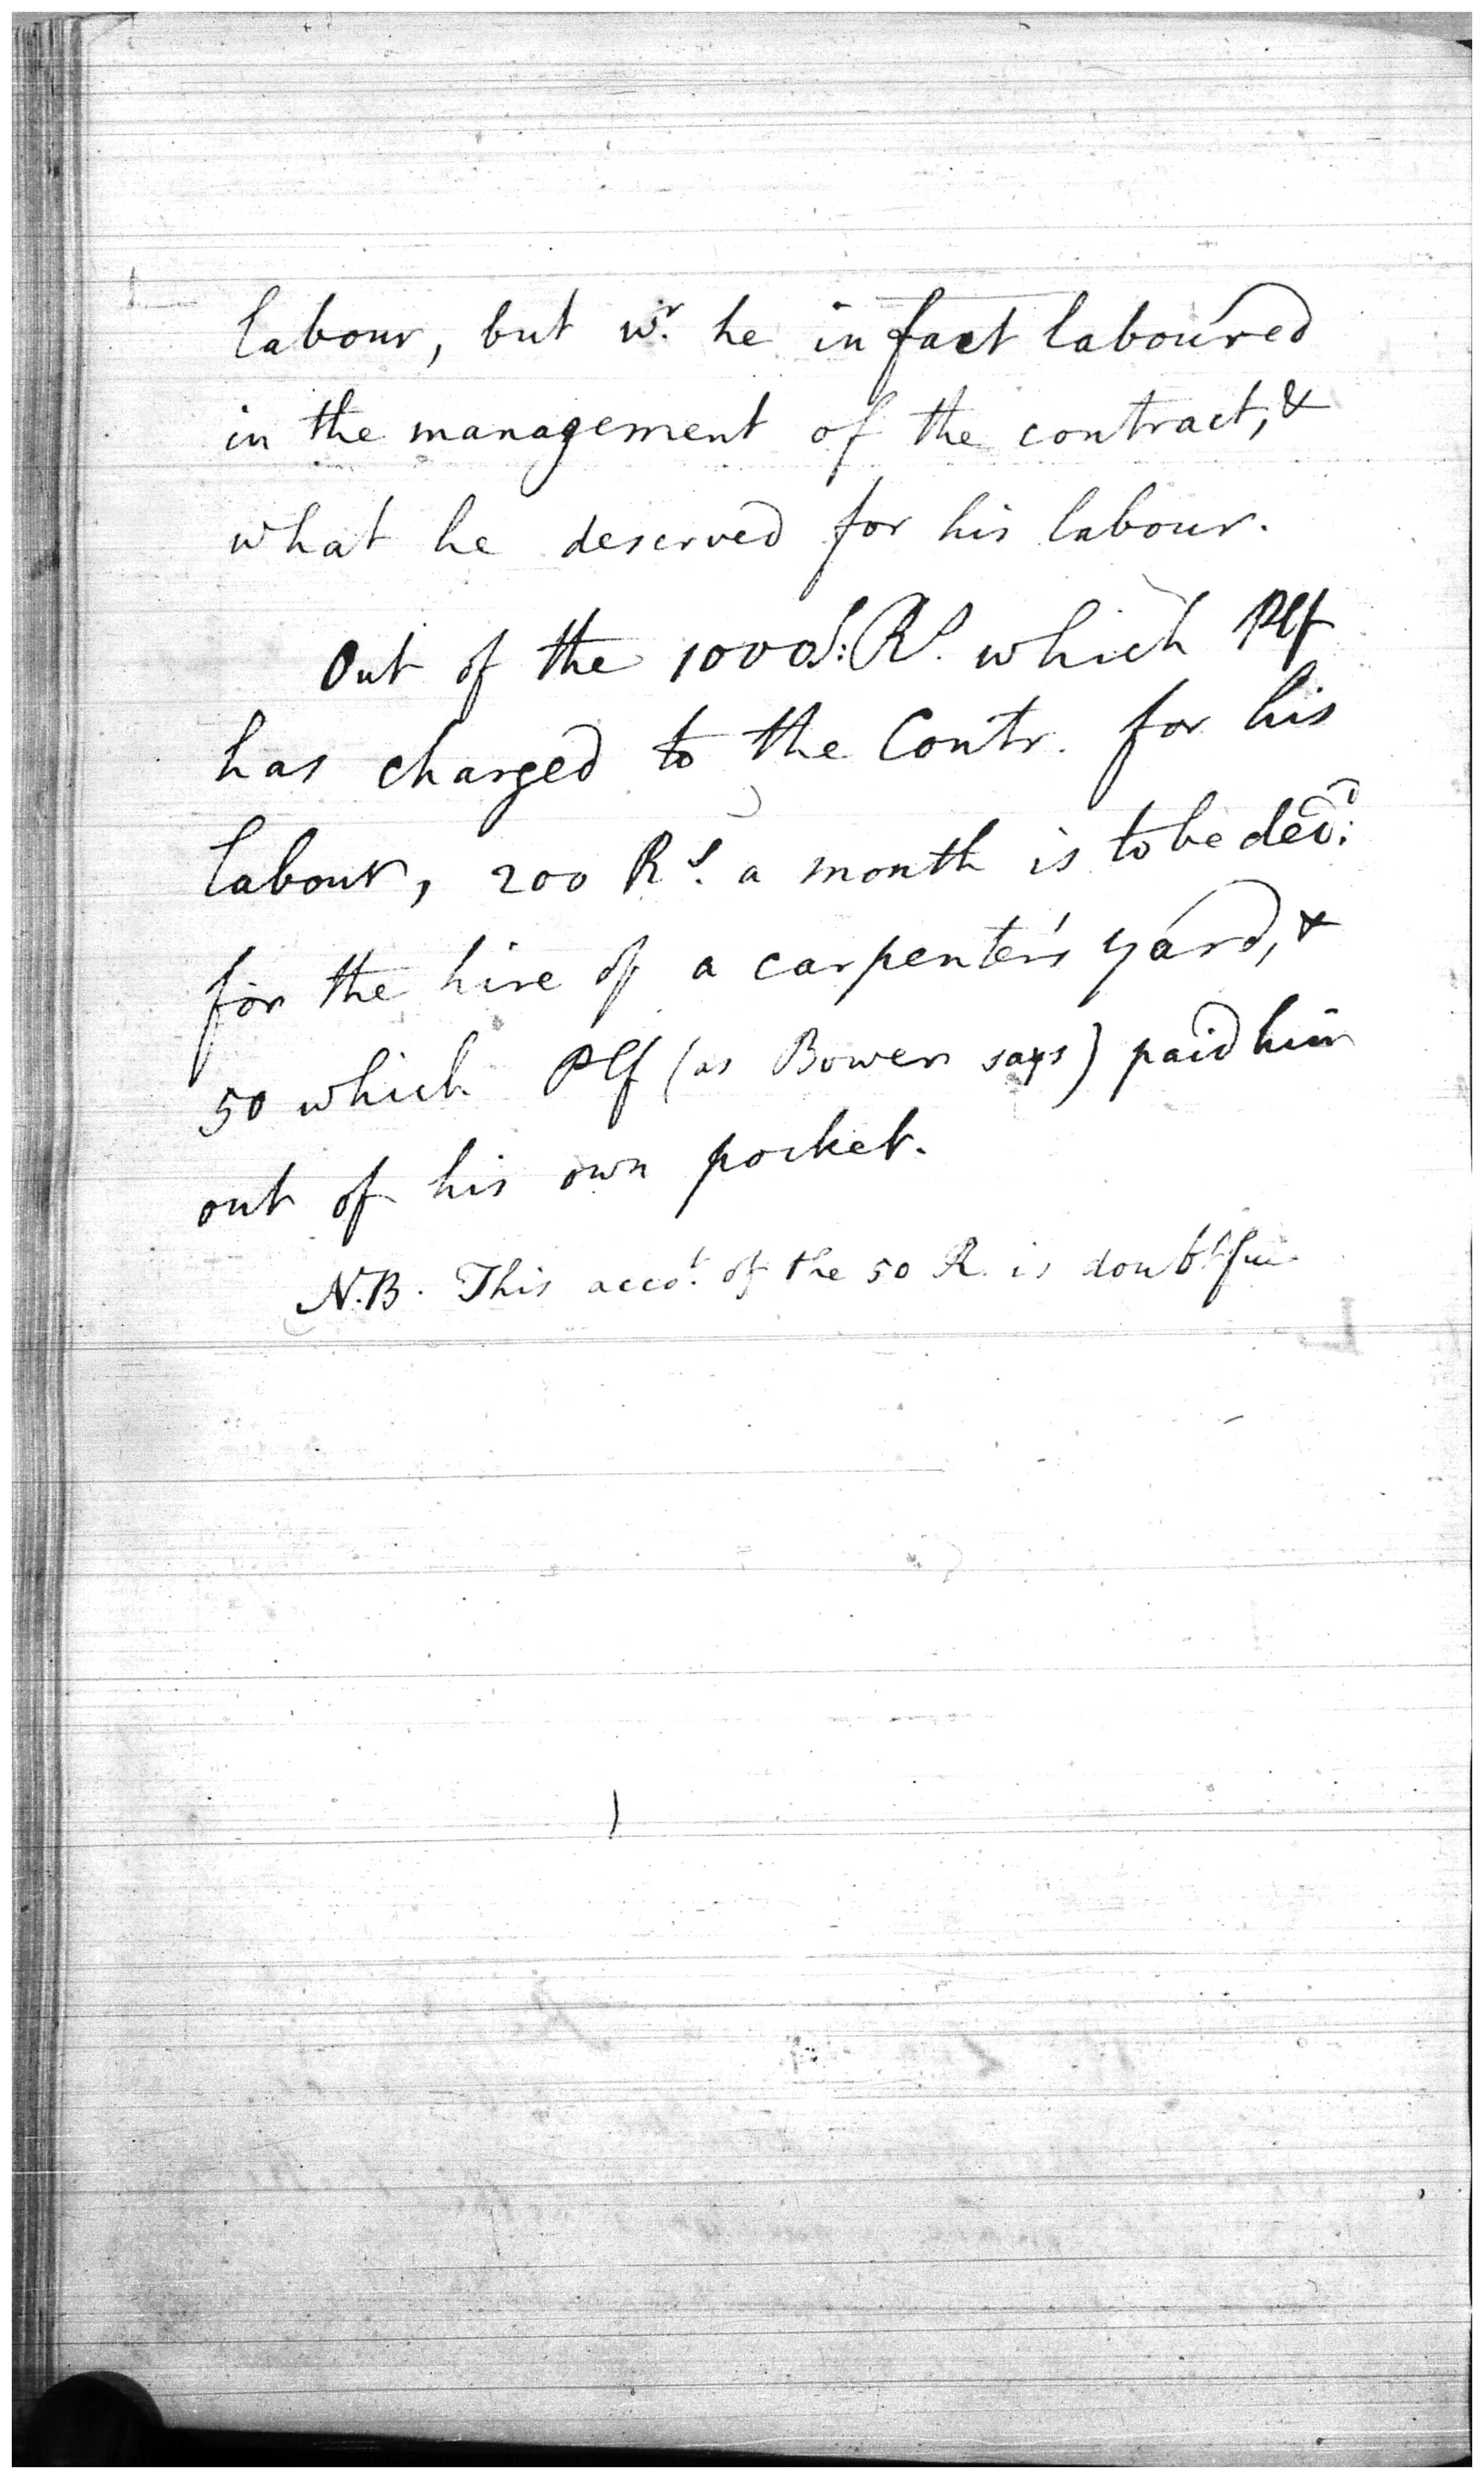 labour, but wr. he in fact laboured
in the management of the contract, &
what he deserved for his labour.
Out of the 1000 S: Rs. which Plf
has charged to the Contr. for his
labour, 200 Rs. a month is to be ded:
for the hire of a carpenter's yard, &
50 which Plf (as Bowen says) paid him
out of his own pocket.
N.B. This acco.t of the 50 R. is doubtful